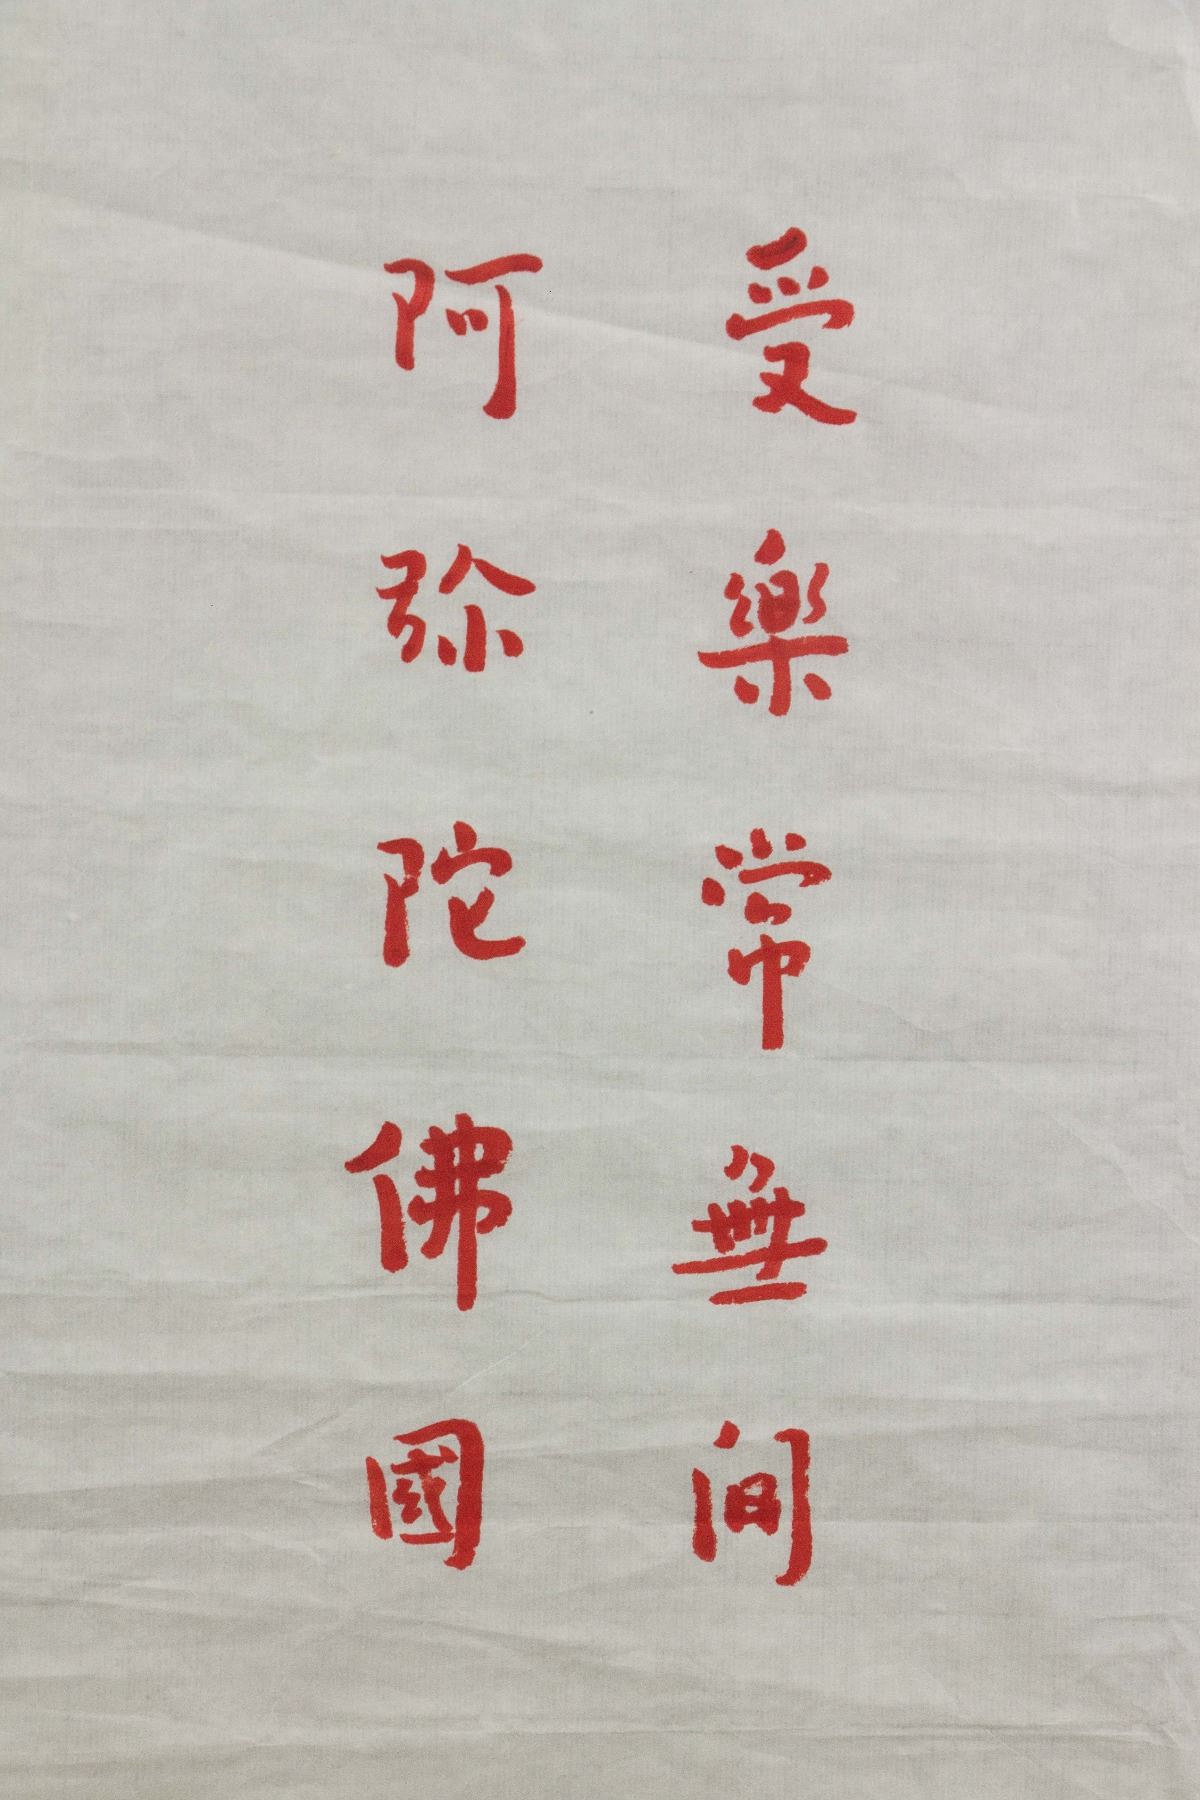 受樂常無間
阿弥陀佛國